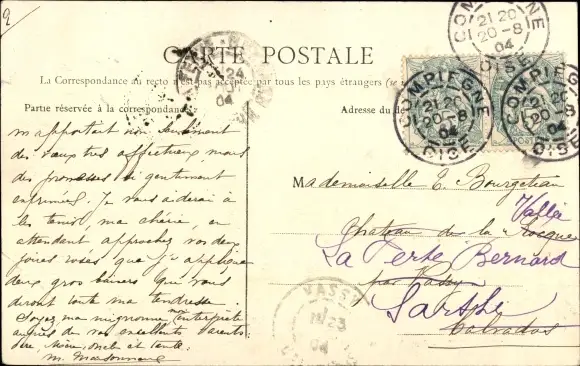 2
CARTE POSTALE
La Correspondance au recto n'est pas acceptée par tous les pays étrangers (se
Partie réservée à la correspondance
Adresse du de
COMPIEGNE
21 20
20-8
04
OISE
COMPIEGNE
21 20
20-8
04
OISE
COMPIEGNE
20-8
04
OISE
24
04
m'apportant non seulement
des vœux très affectueux, mais
des promesses si gentiment
exprimées. Je vous aiderai à
les tenir, ma chérie, en
attendant approchez vos deux
joues roses que j'y applique
deux gros baisers qui vous
diront toute ma tendresse.
Soyez ma mignonne mon interprète
auprès de vos excellents parents
père, mère, oncle et tante.
Mademoiselle E. Bourgeteau
Château de la Rocque
Vallée
La Ferté Bernard
par Vassy
Sarthe
Calvados
VASSY
23
04